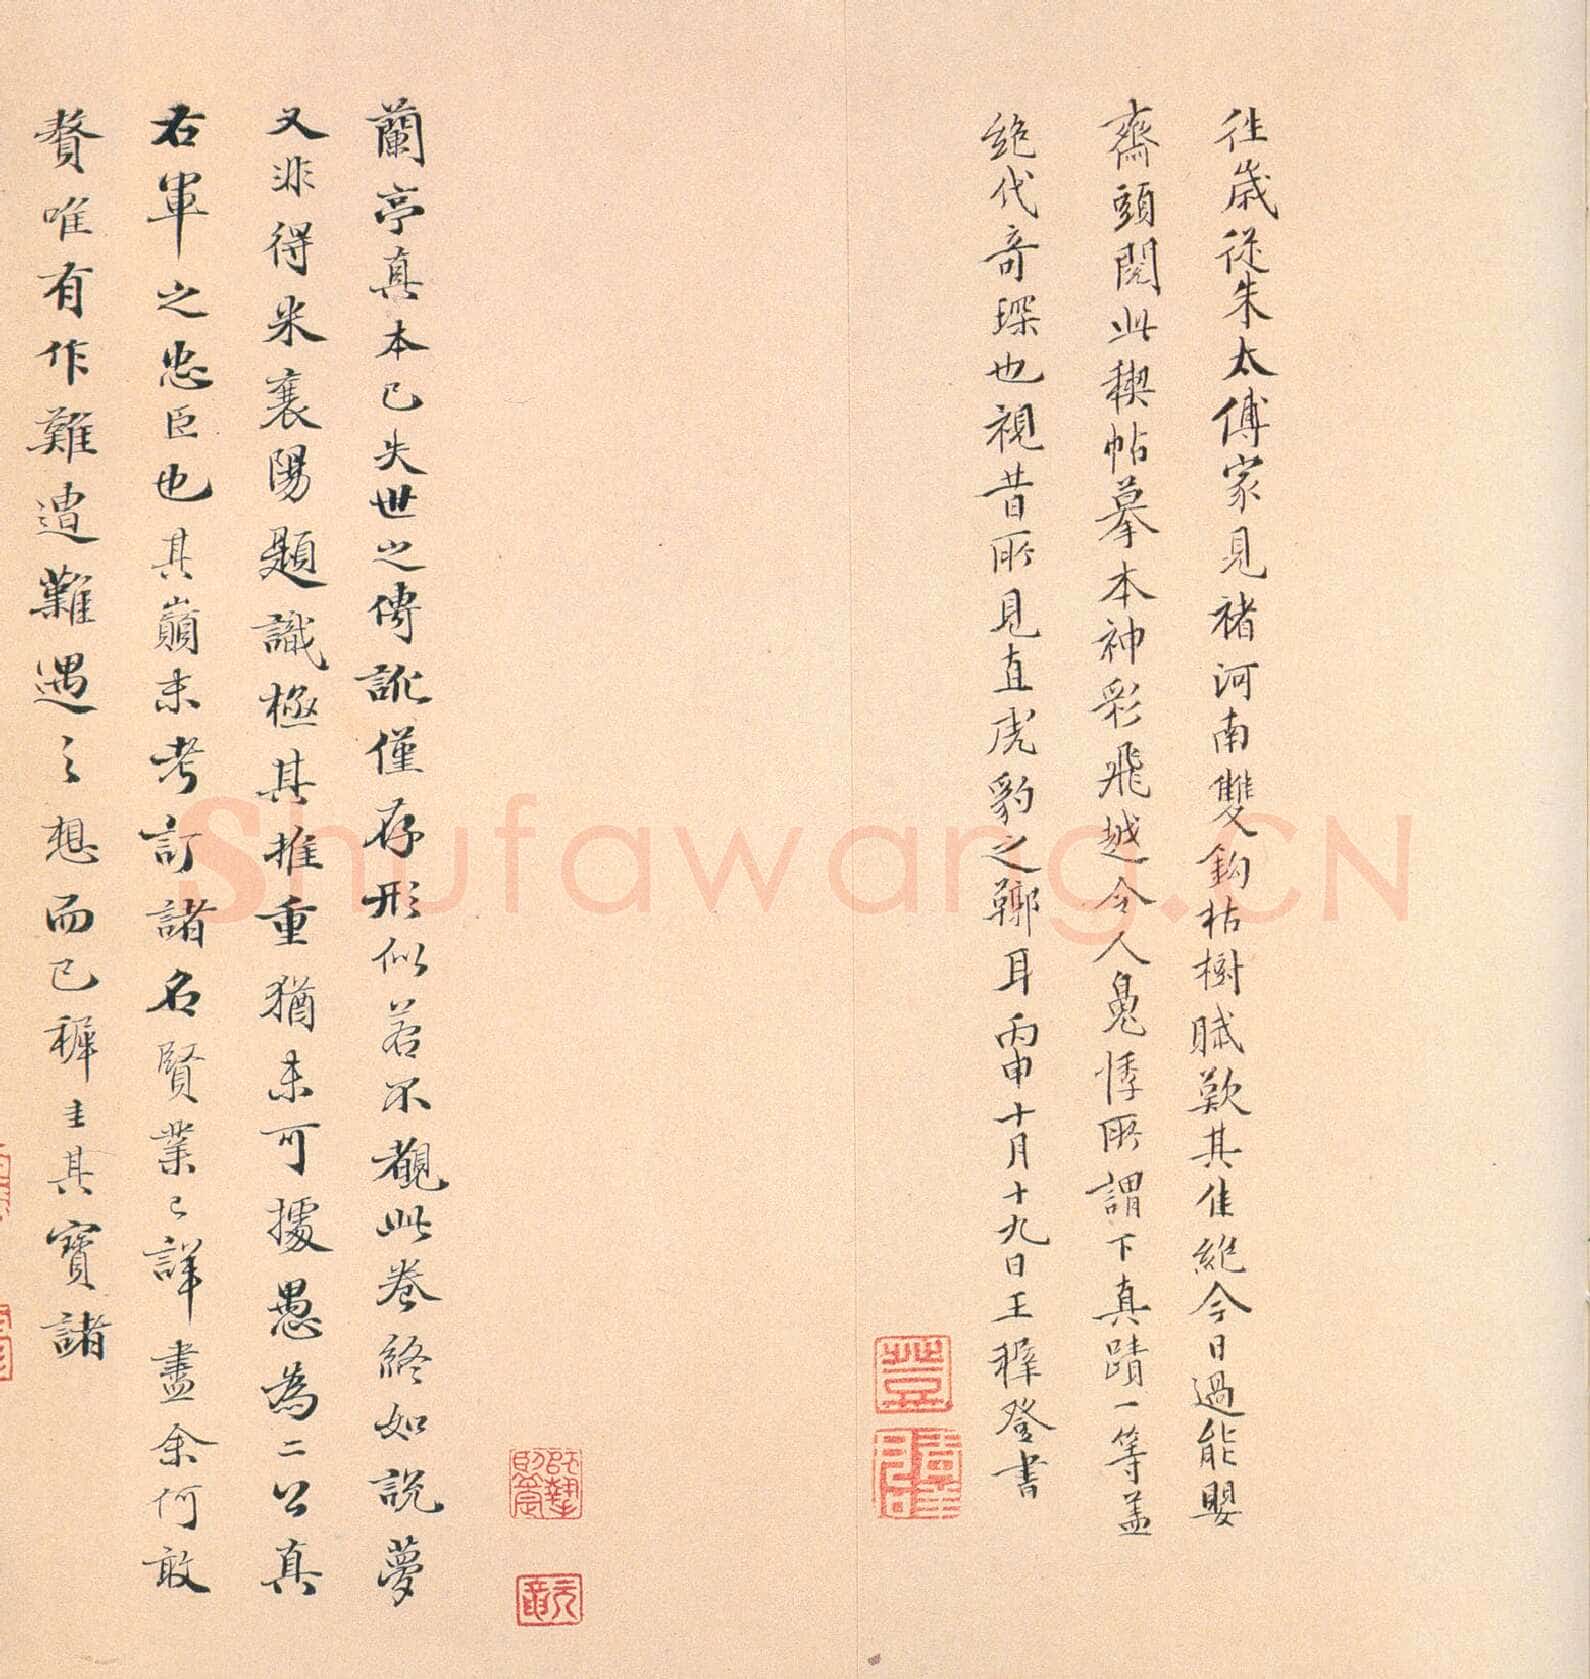 徃歲從朱太傅家見褚河南雙鈎枯樹賦歎其隹絕今日過能嬰
齋頭閱此稧帖摹本神彩飛越令人䰟悸所謂下真蹟一等葢
絕代奇琛也視昔所見直虎豹之鞹耳丙申十月十九日王穉登書
蘭亭真本已失世之傳訛僅存形似若不觀此卷終如說夢
又非得米襄陽題識極其推重猶未可據愚為二公真
右軍之忠臣也其巔末考訂諸名賢業已詳盡余何敢
贅唯有作難遭難遇之想而已穉圭其寶諸
Shufawang.CN